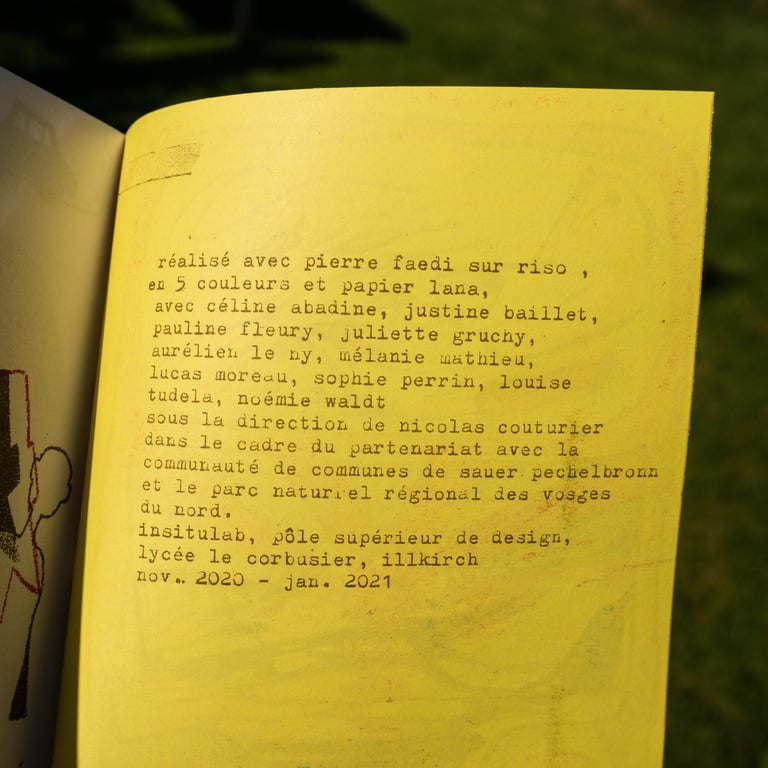 réalisé avec pierre faedi sur riso ,
en 5 couleurs et papier lana,
avec céline abadine, justine baillet,
pauline fleury, juliette gruchy,
aurélien le ny, mélanie mathieu,
lucas moreau, sophie perrin, louise
tudela, noémie waldt
sous la direction de nicolas couturier
dans le cadre du partenariat avec la
communauté de communes de sauer pechelbronn
et le parc naturel régional des vosges
du nord.
insitulab, pôle supérieur de design,
lycée le corbusier, illkirch
nov.. 2020 - jan. 2021